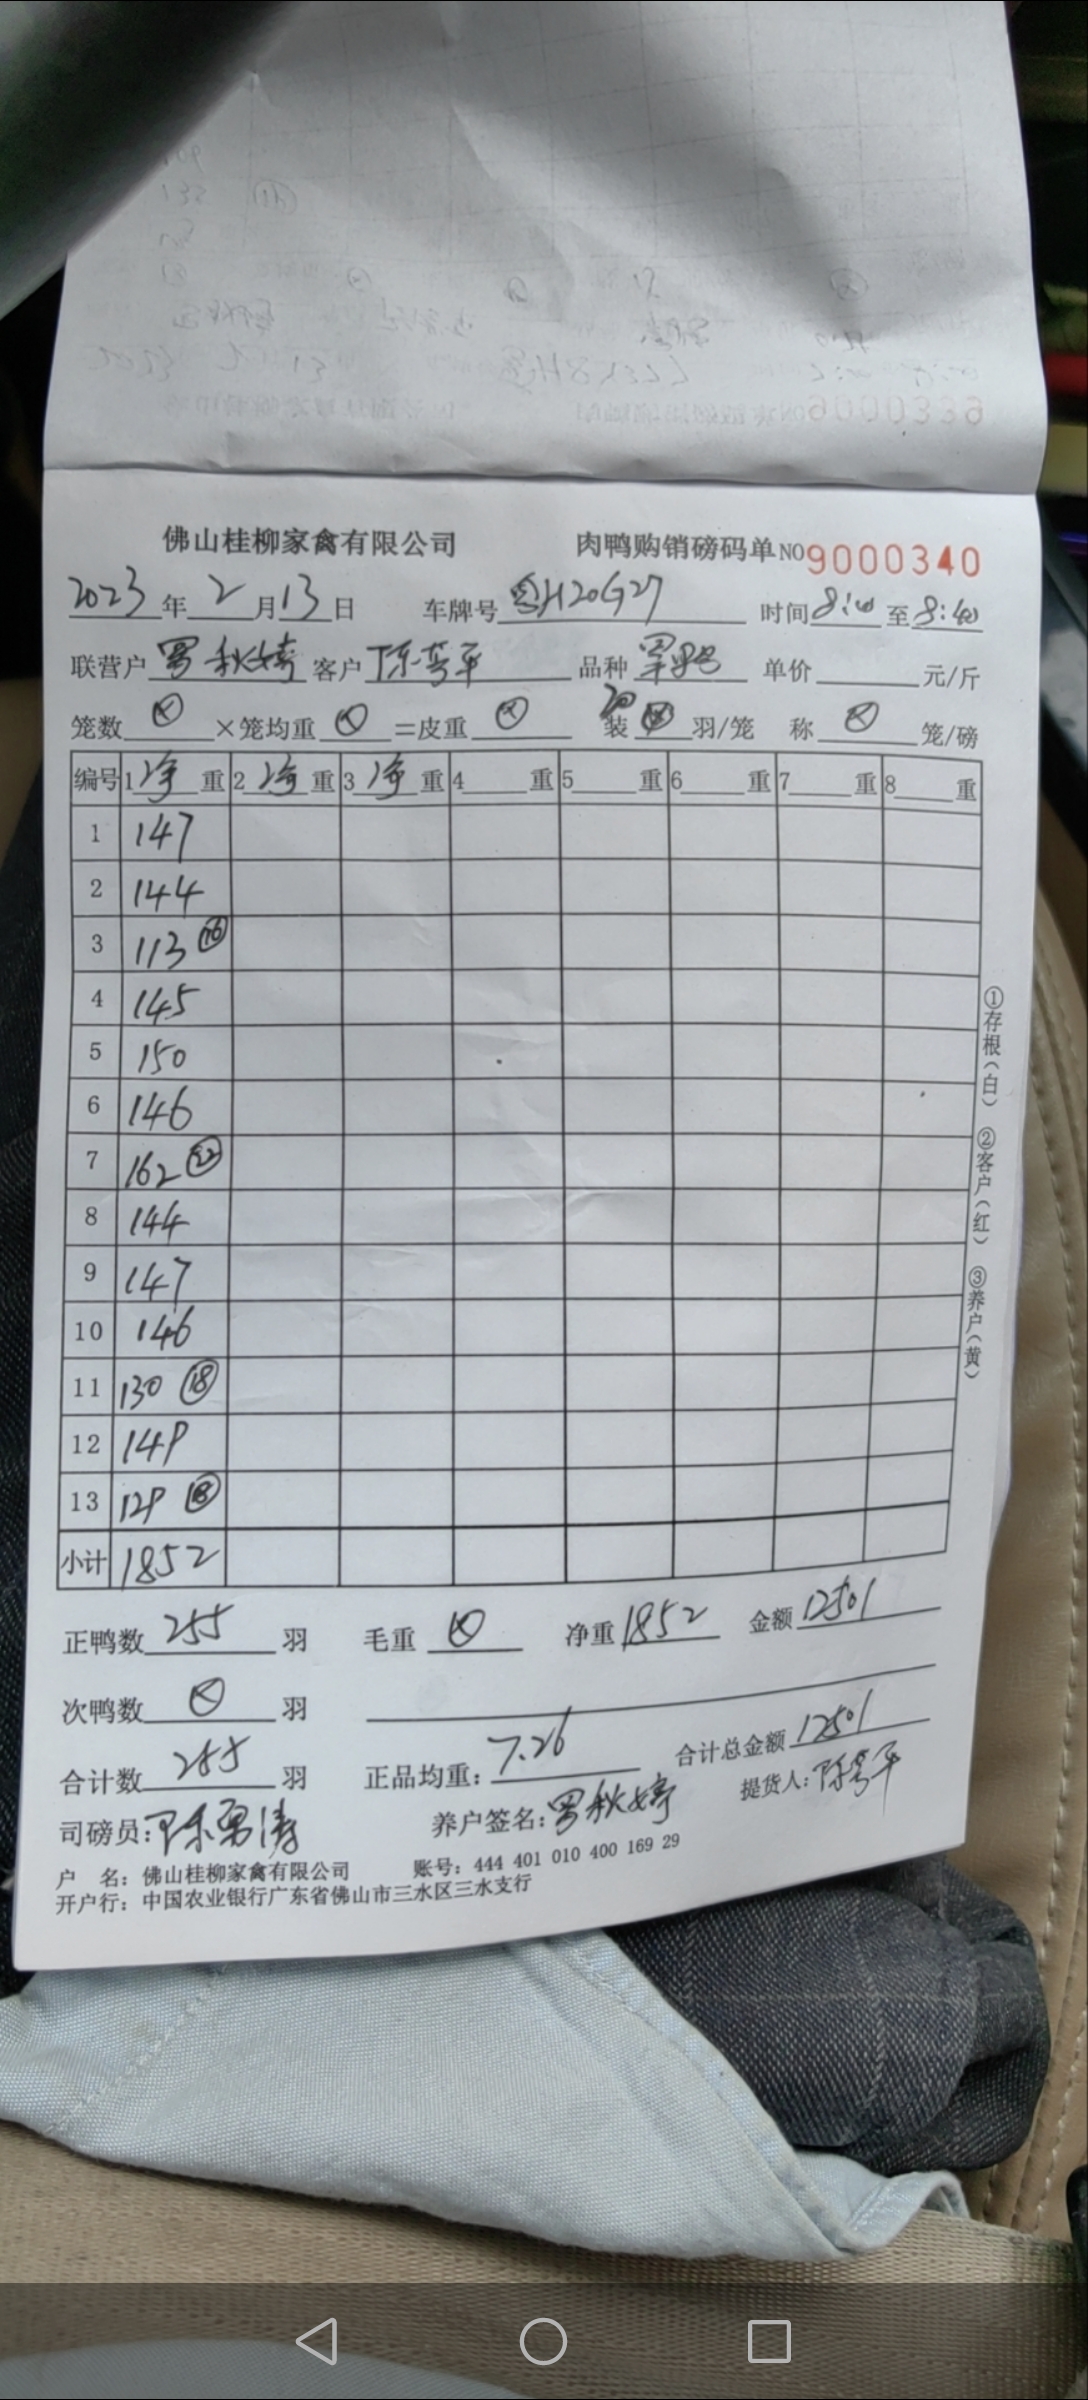 佛山桂柳家禽有限公司 肉鸭购销磅码单 NO 9000340
2023 年 2 月 13 日 车牌号 粤H20G27 时间 8:10 至 8:40
联营户 罗秋婷 客户 陈 平 品种 单价 元/斤
笼数 ⊗ ×笼均重 ⊗ =皮重 ⊗ 20 装 羽/笼 称 ⊗ 笼/磅
编号 1 净 重 2 净 重 3 净 重 4 重 5 重 6 重 7 重 8 重
1 147
2 144
3 113 ⑯
4 145
5 150
6 146
7 162 ㉒
8 144
9 147
10 146
11 130 ⑱
12 149
13 129 ⑱
小计 1852
正鸭数 255 羽 毛重 ⊗ 净重 1852 金额 12501
次鸭数 ⊗ 羽
合计数 255 羽 正品均重: 7.26 合计总金额 12501
司磅员: 养户签名: 罗秋婷 提货人: 陈 平
户 名: 佛山桂柳家禽有限公司 账号: 444 401 010 400 169 29
开户行: 中国农业银行广东省佛山市三水区三水支行
①存根(白) ②客户(红) ③养户(黄)